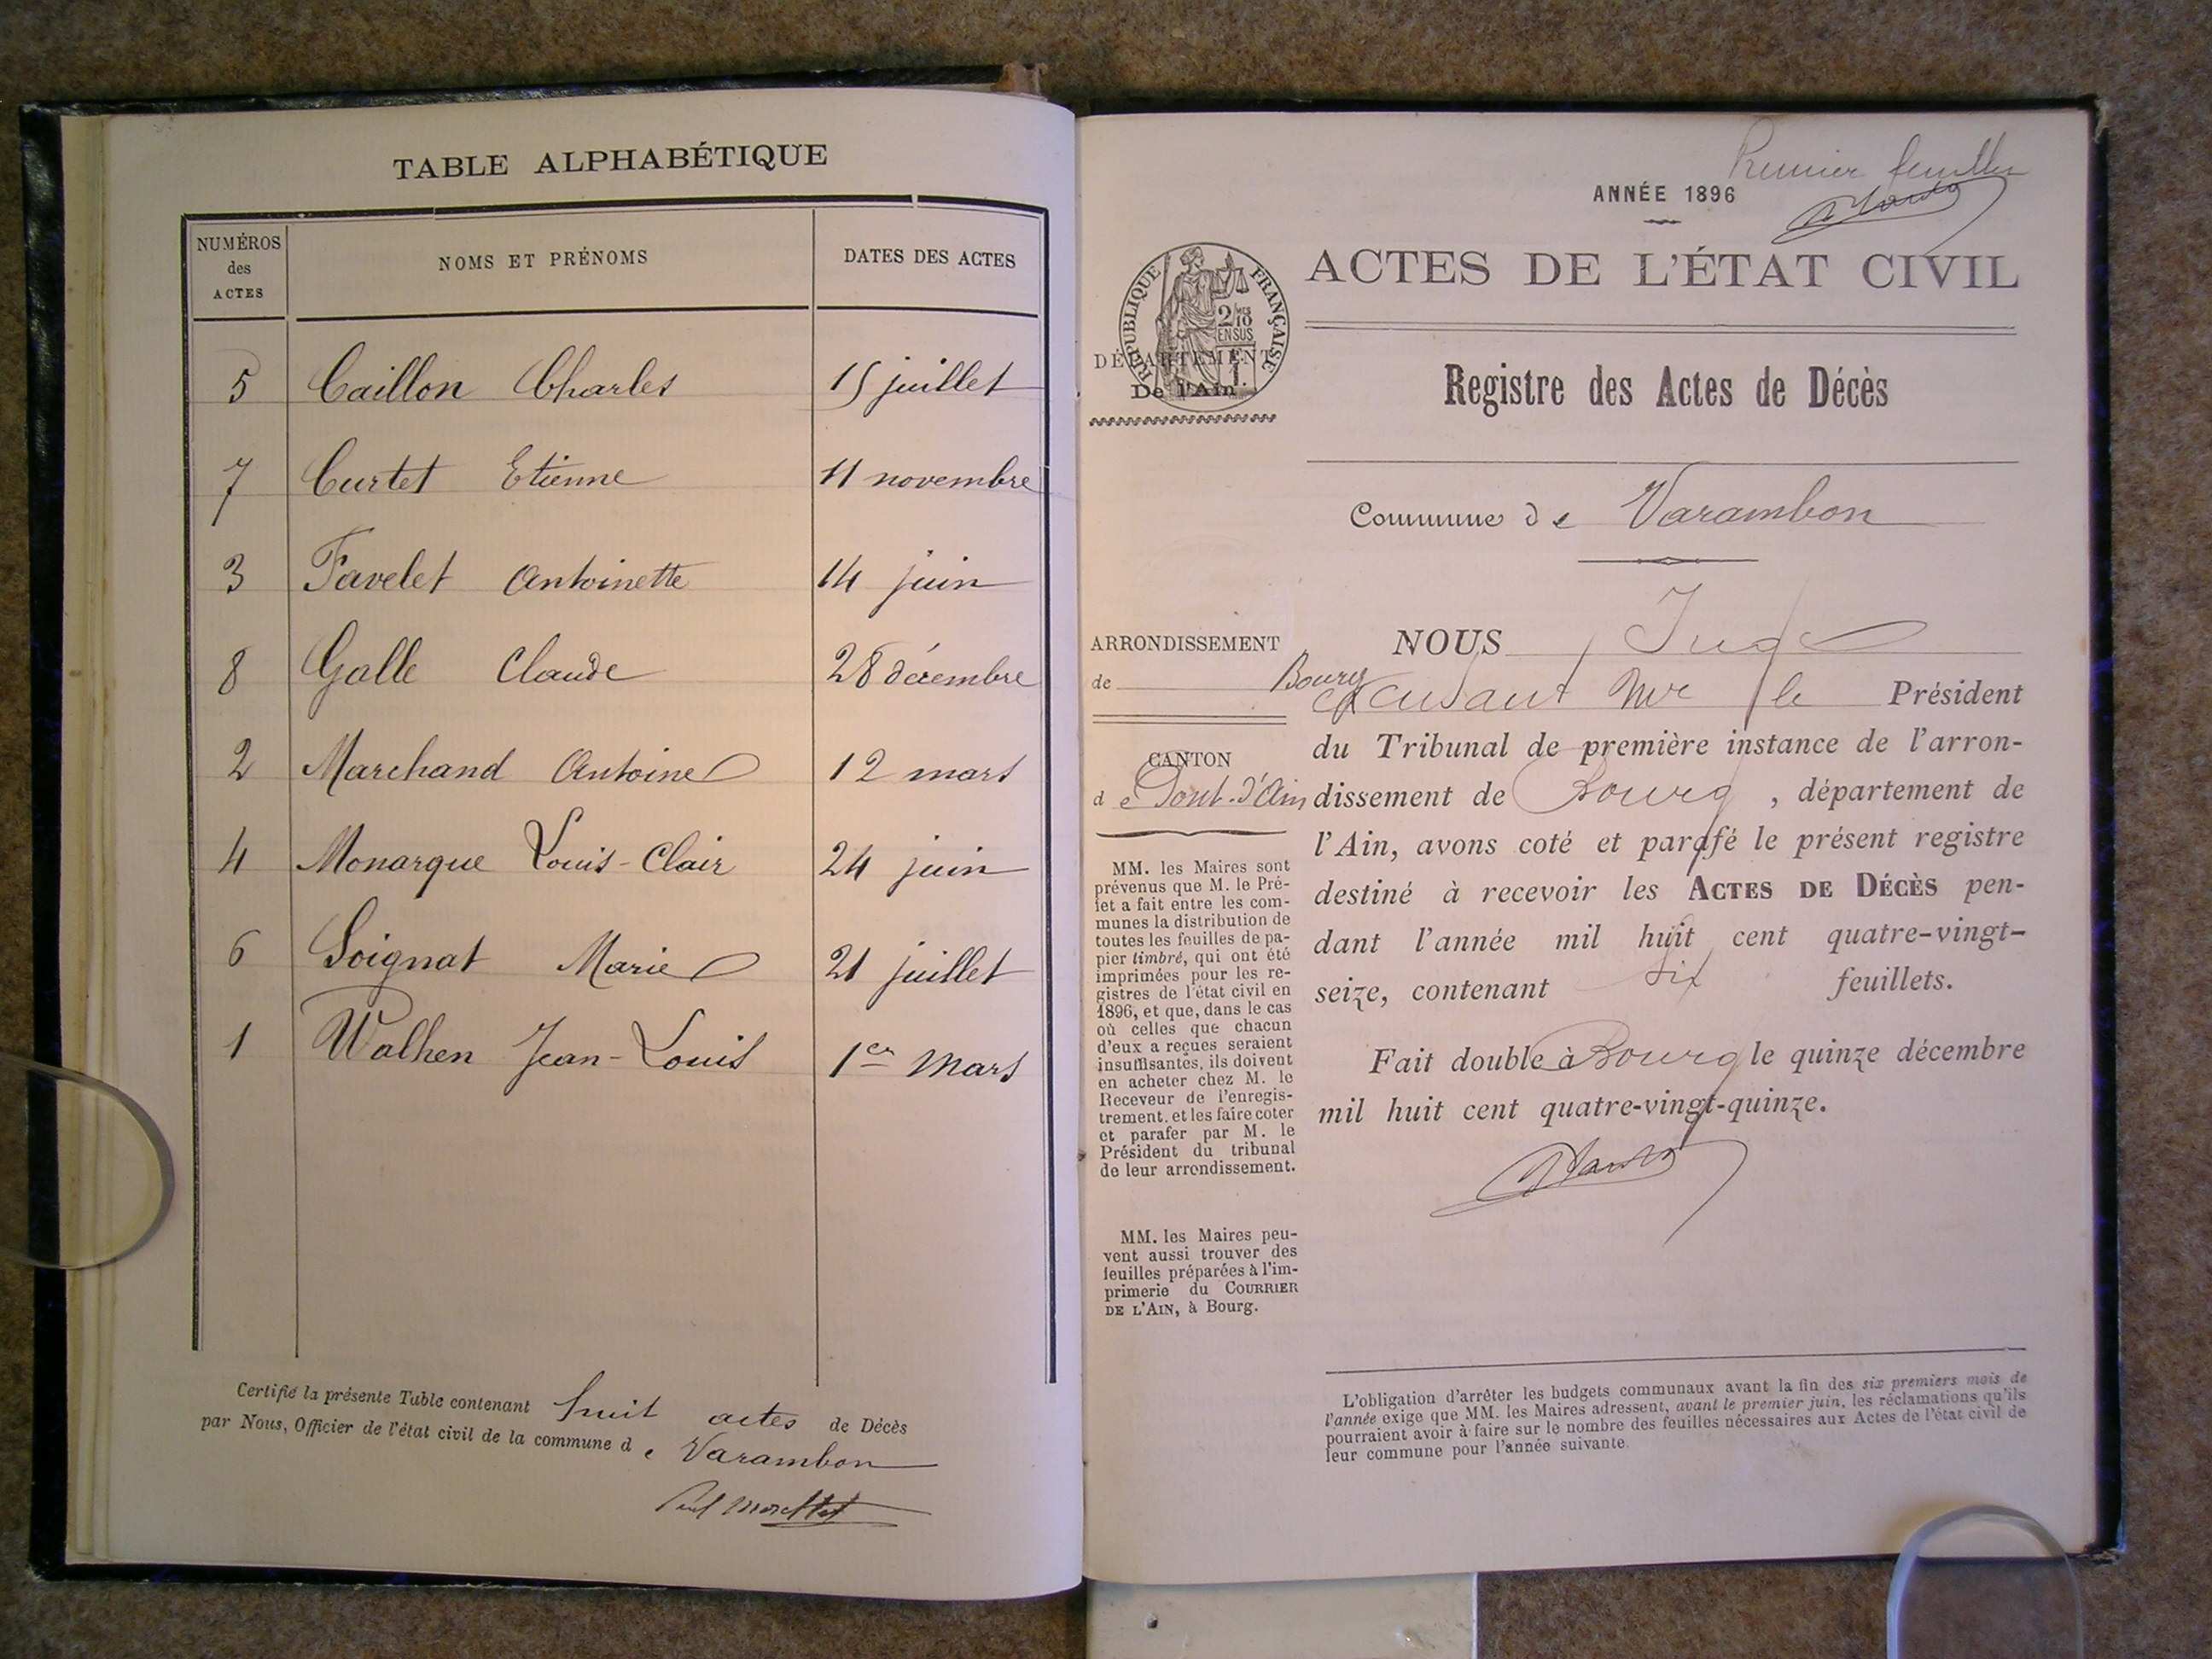 TABLE ALPHABÉTIQUE
NUMÉROS des ACTES NOMS ET PRÉNOMS DATES DES ACTES
5 Caillon Charles 15 juillet
7 Curtet Etienne 11 novembre
3 Favelet Antoinette 14 juin
8 Galle Claude 28 décembre
2 Marchand Antoine 12 mars
4 Monarque Louis-Clair 24 juin
6 Soignat Marie 21 juillet
1 Walhen Jean-Louis 1er Mars
Certifié la présente Table contenant huit actes de Décès
par Nous, Officier de l'état civil de la commune de Varambon
Paul Morellet
Premier feuillet
ANNÉE 1896
ACTES DE L'ÉTAT CIVIL
RÉPUBLIQUE FRANÇAISE
2/10 EN SUS
DÉPARTEMENT
De l'Ain
Registre des Actes de Décès
Commune de Varambon
ARRONDISSEMENT
de Bourg
CANTON
de Pont-d'Ain
MM. les Maires sont
prévenus que M. le Pré-
fet a fait entre les com-
munes la distribution de
toutes les feuilles de pa-
pier timbré, qui ont été
imprimées pour les re-
gistres de l'état civil en
1896, et que, dans le cas
où celles que chacun
d'eux a reçues seraient
insuffisantes, ils doivent
en acheter chez M. le
Receveur de l'enregis-
trement. et les faire coter
et parafer par M. le
Président du tribunal
de leur arrondissement.
MM. les Maires peu-
vent aussi trouver des
feuilles préparées à l'im-
primerie du COURRIER
DE L'AIN, à Bourg.
NOUS Juge
excusant Mr le Président
du Tribunal de première instance de l'arron-
dissement de Bourg, département de
l'Ain, avons coté et parafé le présent registre
destiné à recevoir les ACTES DE DÉCÈS pen-
dant l'année mil huit cent quatre-vingt-
seize, contenant six feuillets.
Fait double à Bourg le quinze décembre
mil huit cent quatre-vingt-quinze.
L'obligation d'arrêter les budgets communaux avant la fin des six premiers mois de
l'année exige que MM. les Maires adressent, avant le premier juin, les réclamations qu'ils
pourraient avoir à faire sur le nombre des feuilles nécessaires aux Actes de l'état civil de
leur commune pour l'année suivante.